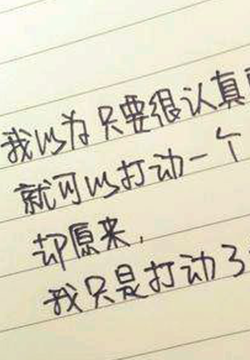 我以为只要很认真
就可以打动一个
却原来，
我只是打动了